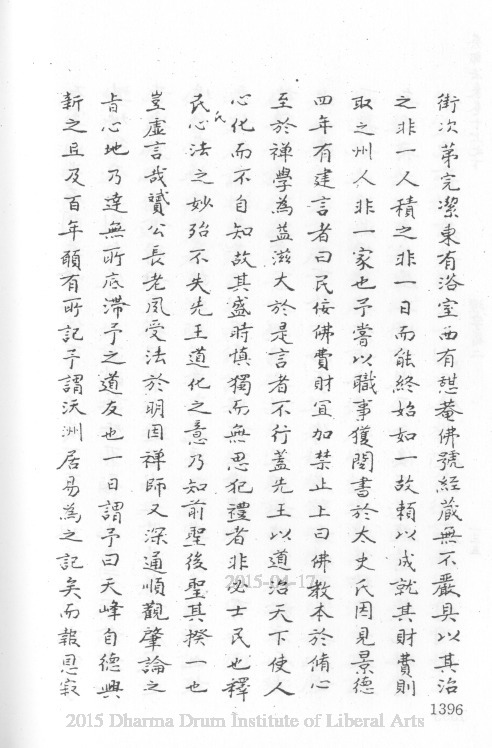 街次第完潔東有浴室西有憇菴佛號經藏無不嚴具以其治
之非一人積之非一日而能終始如一故頼以成就其財費則
取之州人非一家也予嘗以職事獲閱書於太史氏因見景德
四年有建言者曰民佞佛費財宜加禁止上曰佛教本於脩心
至於禅學為益滋大於是言者不行蓋先王以道治天下使人
心化而不自知故其盛時慎獨而無思犯禮者非必士民也釋
民心法之妙殆不失先王道化之意乃知前聖後聖其揆一也
氏
豈虛言哉贇公長老夙受法於明因禅師又深通順觀肇論之
旨心地乃達無所底滯予之道友也一日謂予曰天峰自德興
新之且及百年願有所記予謂沃洲居易為之記矣而報恩寂
2015-04-17
1396
2015 Dharma Drum Institute of Liberal Arts